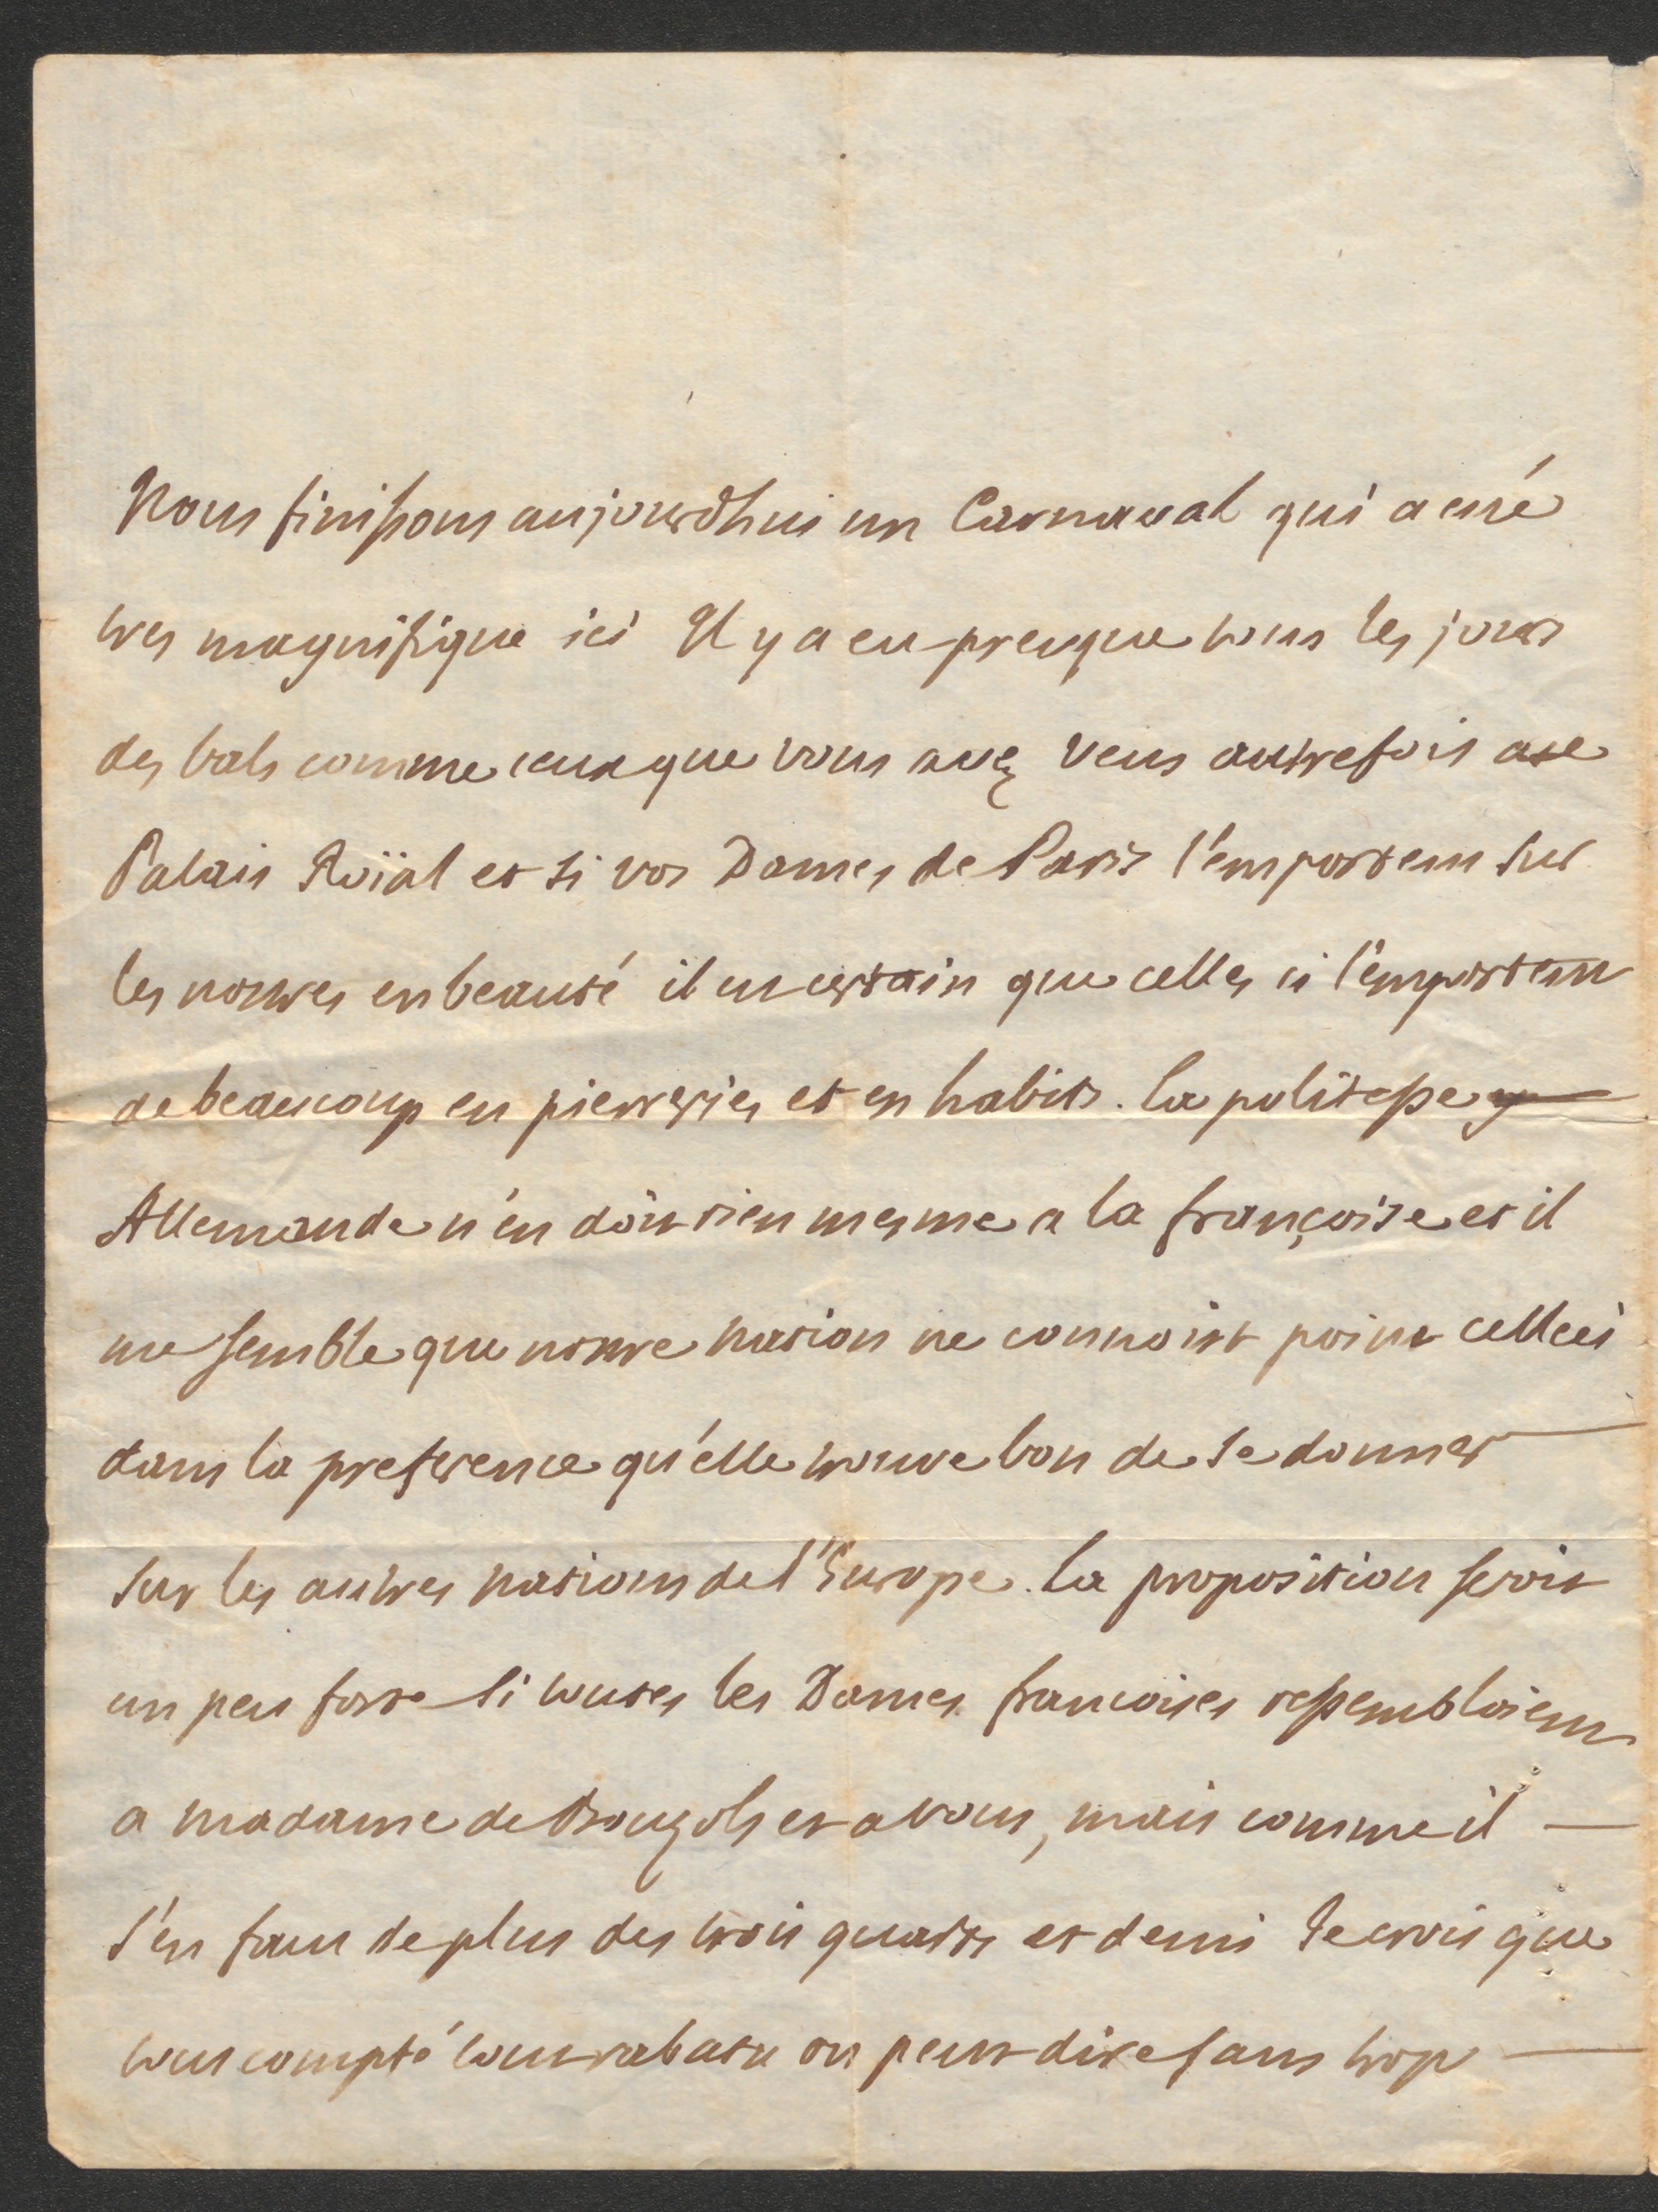 Nous finissons aujourdhui un Carnaval qui a esté
tres magnifique ici Il y a eu presque tous les jours
des bals comme ceux que vous avez veus autrefois au
Palais Roïal et si vos Dames de Paris l'emportent sur
les nostres en beauté il est certain que celles ci l'emportent
de beaucoup en pierreries et en habits. la politesse
Allemande n'en doit rien mesme a la françoise et il
me semble que nostre nation ne connoist point celle ci
dans la preference qu'elle trouve bon de se donner
sur les autres nations de l'Europe. la proposition seroit
un peu forte si toutes les Dames francoises ressembloient
a madame de Bouzols et a vous, mais comme il
s'en faut de plus des trois quarts et demi Je crois que
tout compté tout rabatu on peut dire sans trop